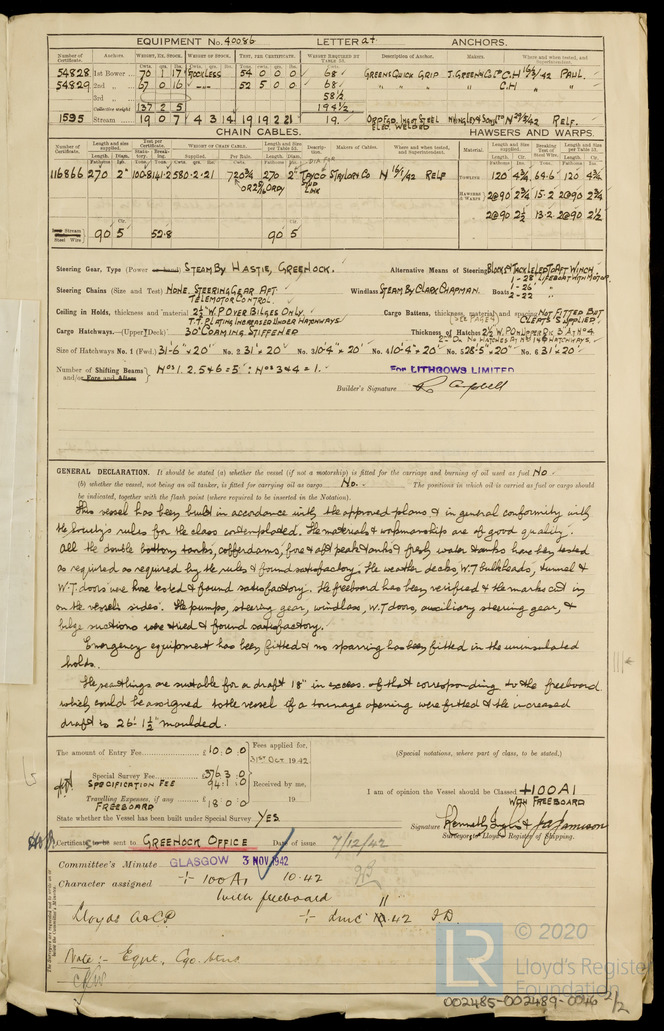 EQUIPMENT No. 40086 LETTER at ANCHORS.
Number of Certificate. Anchors. WEIGHT, EX. STOCK. WEIGHT OF STOCK. TEST, PER CERTIFICATE. WEIGHT REQUIRED BY TABLE 53. Description of Anchor. Makers. Where and when tested, and Superintendent.
Cwts. qrs. lbs.
54828 1st Bower 70 1 17 STOCKLESS 54 0 0 0 68 GREENS QUICK GRIP J. GREEN & Co Ltd C.H /42 PAUL.
54829 2nd " 67 0 16 52 5 0 0 68 " " C.H "
3rd " 58½
Collective weight 137 2 5 194½
1595 Stream 19 0 7 4 3 14 19 19 2 21 19. ORD FGD INGOT STEEL ELEC. WELDED /42 RELF.
CHAIN CABLES. HAWSERS AND WARPS.
Number of Certificate. Length and size supplied. Test per Certificate. WEIGHT OF CHAIN CABLE. Length and Size per Table 53. Description. Makers of Cables. Where and when tested, and Superintendent. Material. Length and Size supplied. Breaking Test of Steel Wire. Length and Size per Table 53.
Length. Diam. Statutory. Breaking. Supplied. Per Rule. Length. Diam. Length. Cir. Length. Cir.
116866 270 2" 100·8 141·2 580·2·21 720¾ 270 2" TAYCO STUD LINK S TAYLOR & Co N /42 RELF TOWLINE 120 4¾ 64·6 120 4¾
HAWSERS & WARPS 2@90 2¾ 15·2 2@90 2¾
2@90 2½ 13·2 2@90 2½
Steel Wire 90 5 52·8 90 5
Steering Gear, Type (Power or hand) STEAM BY HASTIE, GREENOCK. Alternative Means of Steering BLOCKS & TACKLE LED TO AFT WINCH
Steering Chains (Size and Test) NONE. STEERING GEAR AFT. TELEMOTOR CONTROL. Windlass STEAM BY CLARK CHAPMAN. Boats 1-28' LIFEBOAT WITH MOTOR
1-26' "
2-22 "
Ceiling in Holds, thickness and material 2½ W.P OVER BILGES ONLY. Cargo Battens, thickness, material and spacing NOT FITTED BUT CLEATS SUPPLIED.
T.T. PLATING INCREASED UNDER HATCHWAYS (SEE PAGE 4)
Cargo Hatchways.—(Upper Deck) 30" COAMING STIFFENED Thickness of Hatches 2½ W.P ON UPPER DK
Size of Hatchways No. 1 (Fwd.) 31'-6" × 20' No. 2 31' × 20' No. 3 10'-4" × 20' No. 4 10'-4" × 20' No. 5 28'-5" × 20' No. 6 31' × 20'
Number of Shifting Beams and/or Fore and Afters Nos 1. 2. 5 & 6 = 5 : Nos 3 & 4 = 1.
FOR LITHGOWS LIMITED
Builder's Signature
GENERAL DECLARATION. It should be stated (a) whether the vessel (if not a motorship) is fitted for the carriage and burning of oil used as fuel No
(b) whether the vessel, not being an oil tanker, is fitted for carrying oil as cargo No. The positions in which oil is carried as fuel or cargo should
be indicated, together with the flash point (where required to be inserted in the Notation).
This vessel has been built in accordance with the approved plans & in general conformity with
the Society's rules for the class contemplated. The materials & workmanship are of good quality.
All the double bottom tanks, cofferdams, fore & aft peak tanks & fresh water tanks have been tested
as required as required by the rules & found satisfactory. The weather decks, W.T bulkheads, tunnel &
W.T. doors were hose tested & found satisfactory. The freeboard has been verified & the marks cut in
on the vessel's sides. The pumps, steering gear, windlass, W.T doors, auxiliary steering gear, &
bilge suctions were tried & found satisfactory.
Emergency equipment has been fitted & no sparring has been fitted in the uninsulated
holds.
The scantlings are suitable for a draft 18" in excess of that corresponding to the freeboard
which could be assigned to the vessel if a tonnage opening were fitted & the increased
draft is 26'-1½" moulded.
The amount of Entry Fee £10 : 0 : 0 Fees applied for, 31ST OCT 1942. (Special notations, where part of class, to be stated.)
Special Survey Fee £ 376 3 0
SPECIFICATION FEE 94 1 0 Received by me,
Travelling Expenses, if any FREEBOARD £18 0 0 19 I am of opinion the Vessel should be Classed +100A1 WITH FREEBOARD
State whether the Vessel has been built under Special Survey YES Signature
Surveyor to Lloyd's Register of Shipping.
Certificate to be sent to GREENOCK OFFICE Date of issue 7/12/42
Committee's Minute GLASGOW 3 NOV 1942
Character assigned + 100A1 10.42
with freeboard
Lloyds A&CP + LMC 11.42
Note :- Eqpt., Cgo. btns
© 2020
Lloyd's Register
Foundation
002485-002489-0046 2/2